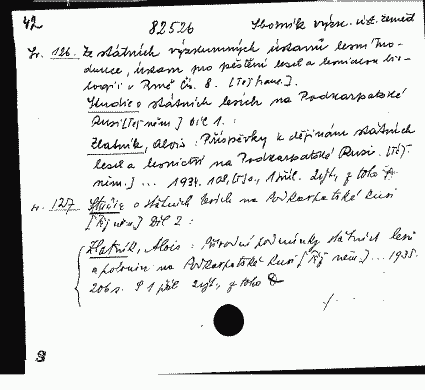 42 82526 Sborník výzk. úst. zeměd
Sv. 126. Ze státních výzkumných ústavů lesní
dukce, ústav pro pěstění lesů a lesnickou bio-
logii v Brně čís. 8. [Téj franc.].
Studie o státních lesích na Podkarpatské
Rusi [Téj něm.] Díl 1. :
Zlatník, Alois : Příspěvky k dějinám státních
lesů a lesnictví na Podkarpatské Rusi. [Téj.
něm.] ... 1934. 109, [1] s., 1 příl. 2 yt, z toho
Sv. 127 Studie o státních lesích na Podkarpatské Rusi
[Téj něm.] Díl 2 :
Zlatník, Alois : Přírodní podmínky státních lesů
a polonin na Podkarpatské Rusi [Téj něm.] ... 1935.
206 s. 1 příl